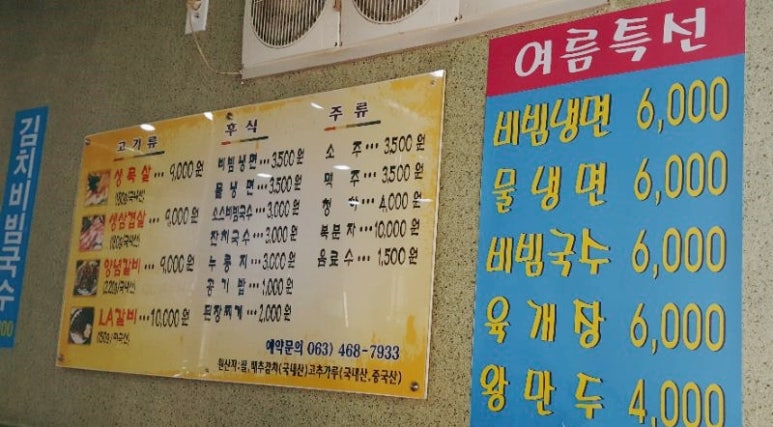 김치비빔국수
00
고기류
생목살 ··· 9,000원
(180g/국내산)
생삼겹살 ··· 9,000원
(180g/국내산)
양념갈비 ··· 9,000원
(220g/국내산)
LA갈비 ··· 10,000원
후식
비빔냉면 ··· 3,500원
물냉면 ··· 3,500원
소스비빔국수 ··· 3,000원
잔치국수 ··· 3,000원
누룽지 ··· 3,000원
공기밥 ··· 1,000원
된장찌개 ··· 2,000원
주류
소주 ··· 3,500원
맥주 ··· 3,500원
청하 ··· 4,000원
복분자 ··· 10,000원
음료수 ··· 1,500원
예약문의 063) 468-7933
원산지:쌀,배추김치(국내산)고추가루(국내산,중국산)
여름특선
비빔냉면 6,000
물냉면 6,000
비빔국수 6,000
육개장 6,000
왕만두 4,000